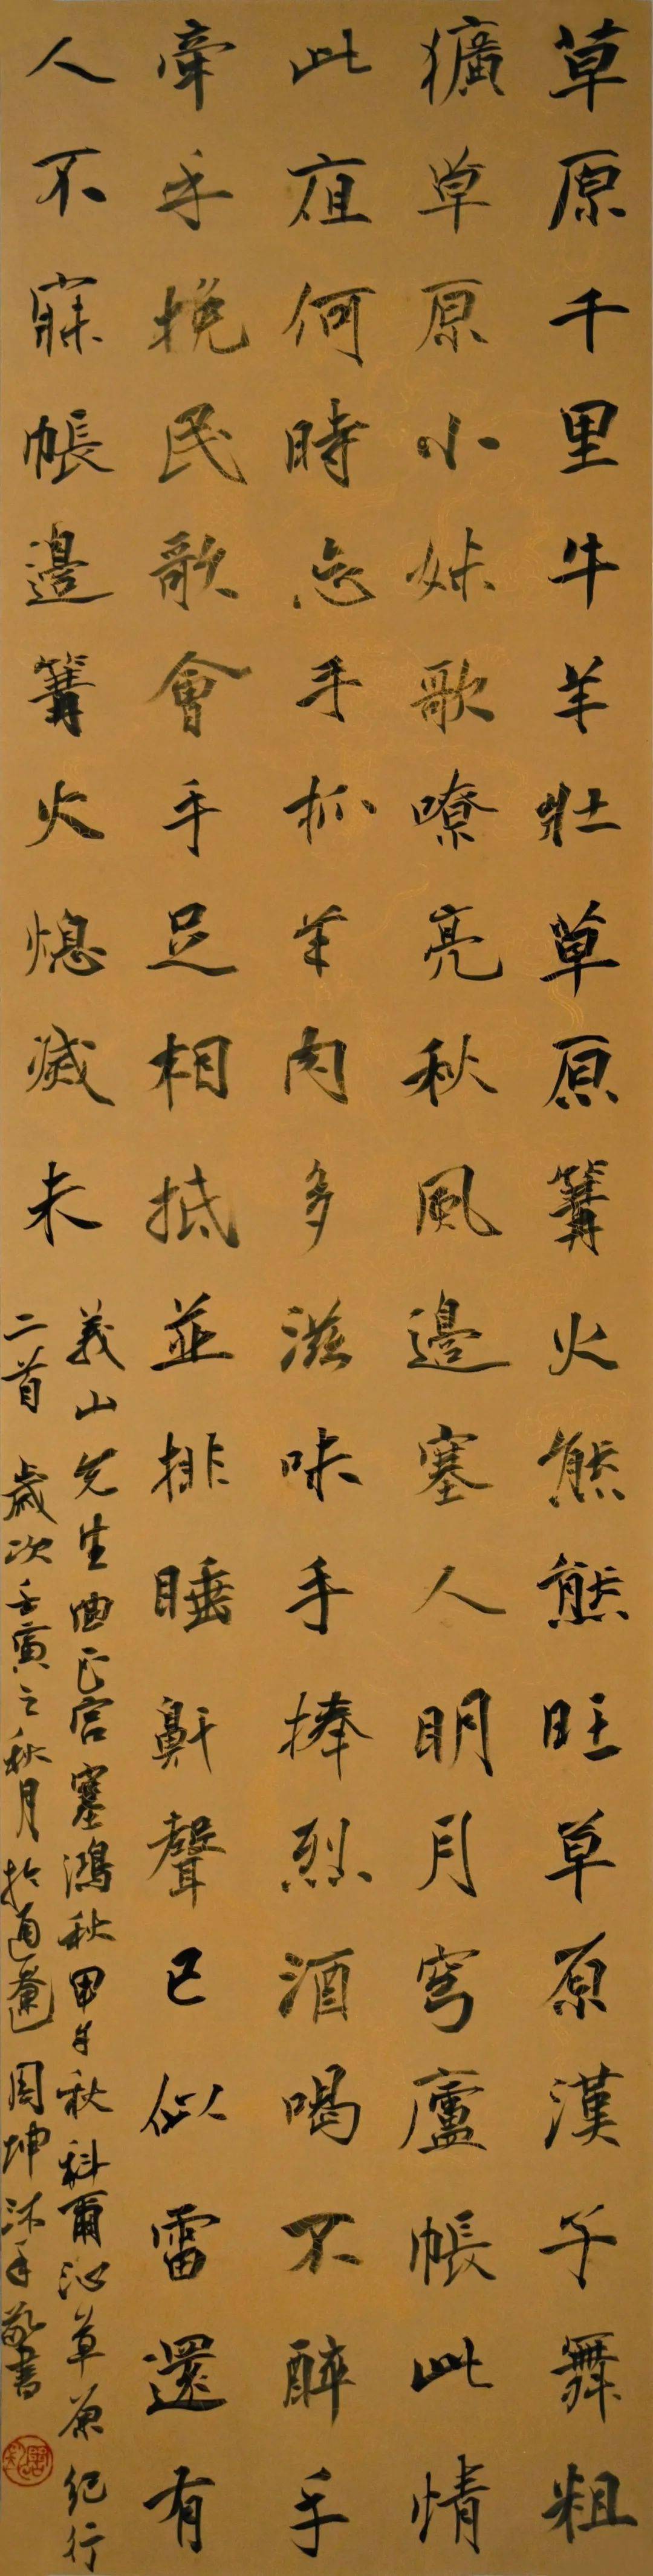 草原千里牛羊壯草原篝火熊熊旺草原漢子舞粗
獷草原小妹歌嘹亮秋風邊塞人明月穹廬帳此情
此疽何時忘手抓羊肉多滋味手捧烈酒喝不醉手
牽手挽民歌會手足相抵並排睡鼾聲已似雷還有
人不寐帳邊篝火熄滅未
義山先生曲正宮塞鴻秋甲午秋科爾沁草原紀行
二首歲次壬寅之秋月於通遼周坤沐手敬書